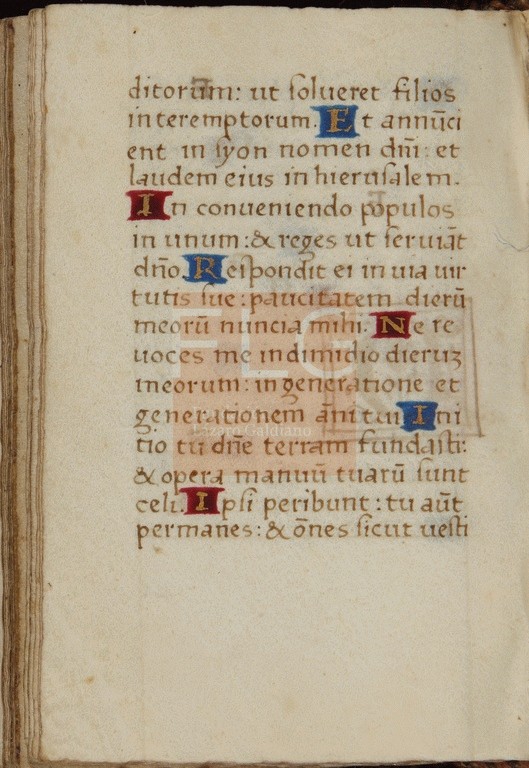 ditorum: ut ſolueret filios
interemptorum. Et annūci
ent in ſyon nomen dn̄i: et
laudem eius in hieruſalem.
In conueniendo populos
in unum: & reges ut ſeruiāt
dn̄o. Reſpondit ei in uia uir
tutis ſue: paucitatem dierū
meorū nuncia mihi. Ne re
uoces me in dimidio dieruꝫ
meorum: in generatione et
generationem āni tui. Ini
tio tu dn̄e terram fundaſti:
& opera manuū tuarū ſunt
celi. Ipſi peribunt: tu aūt
permanēs: & ōnes ſicut ueſti
FLG
Lázaro Galdiano